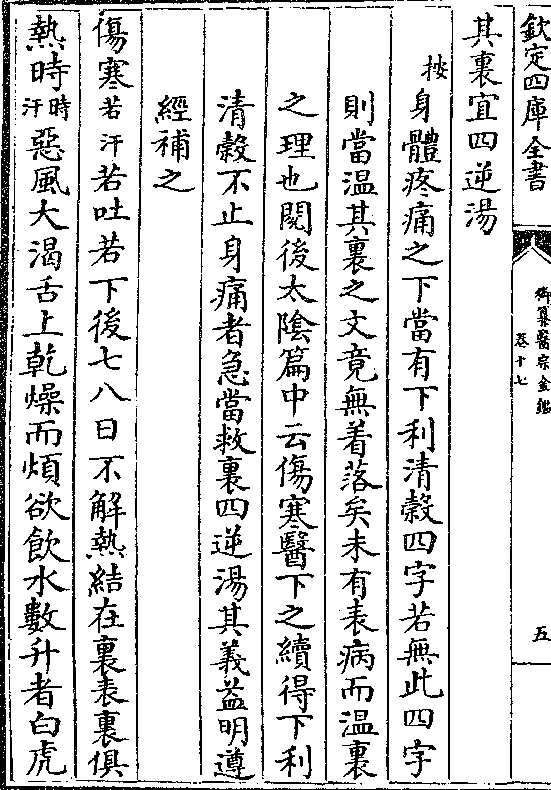 欽定四庫全書
御纂醫宗金鑑
卷十七
五
其裏宜四逆湯
按身體疼痛之下當有下利清穀四字若無此四字
則當温其裏之文竟無着落矣未有表病而温裏
之理也閱後太陰篇中云傷寒醫下之續得下利
清穀不止身痛者急當救裏四逆湯其義益明遵
經補之
傷寒若汗若吐若下後七八日不解熱結在裏表裏俱
熱時時汗惡風大渴舌上乾燥而煩欲飲水數升者白虎